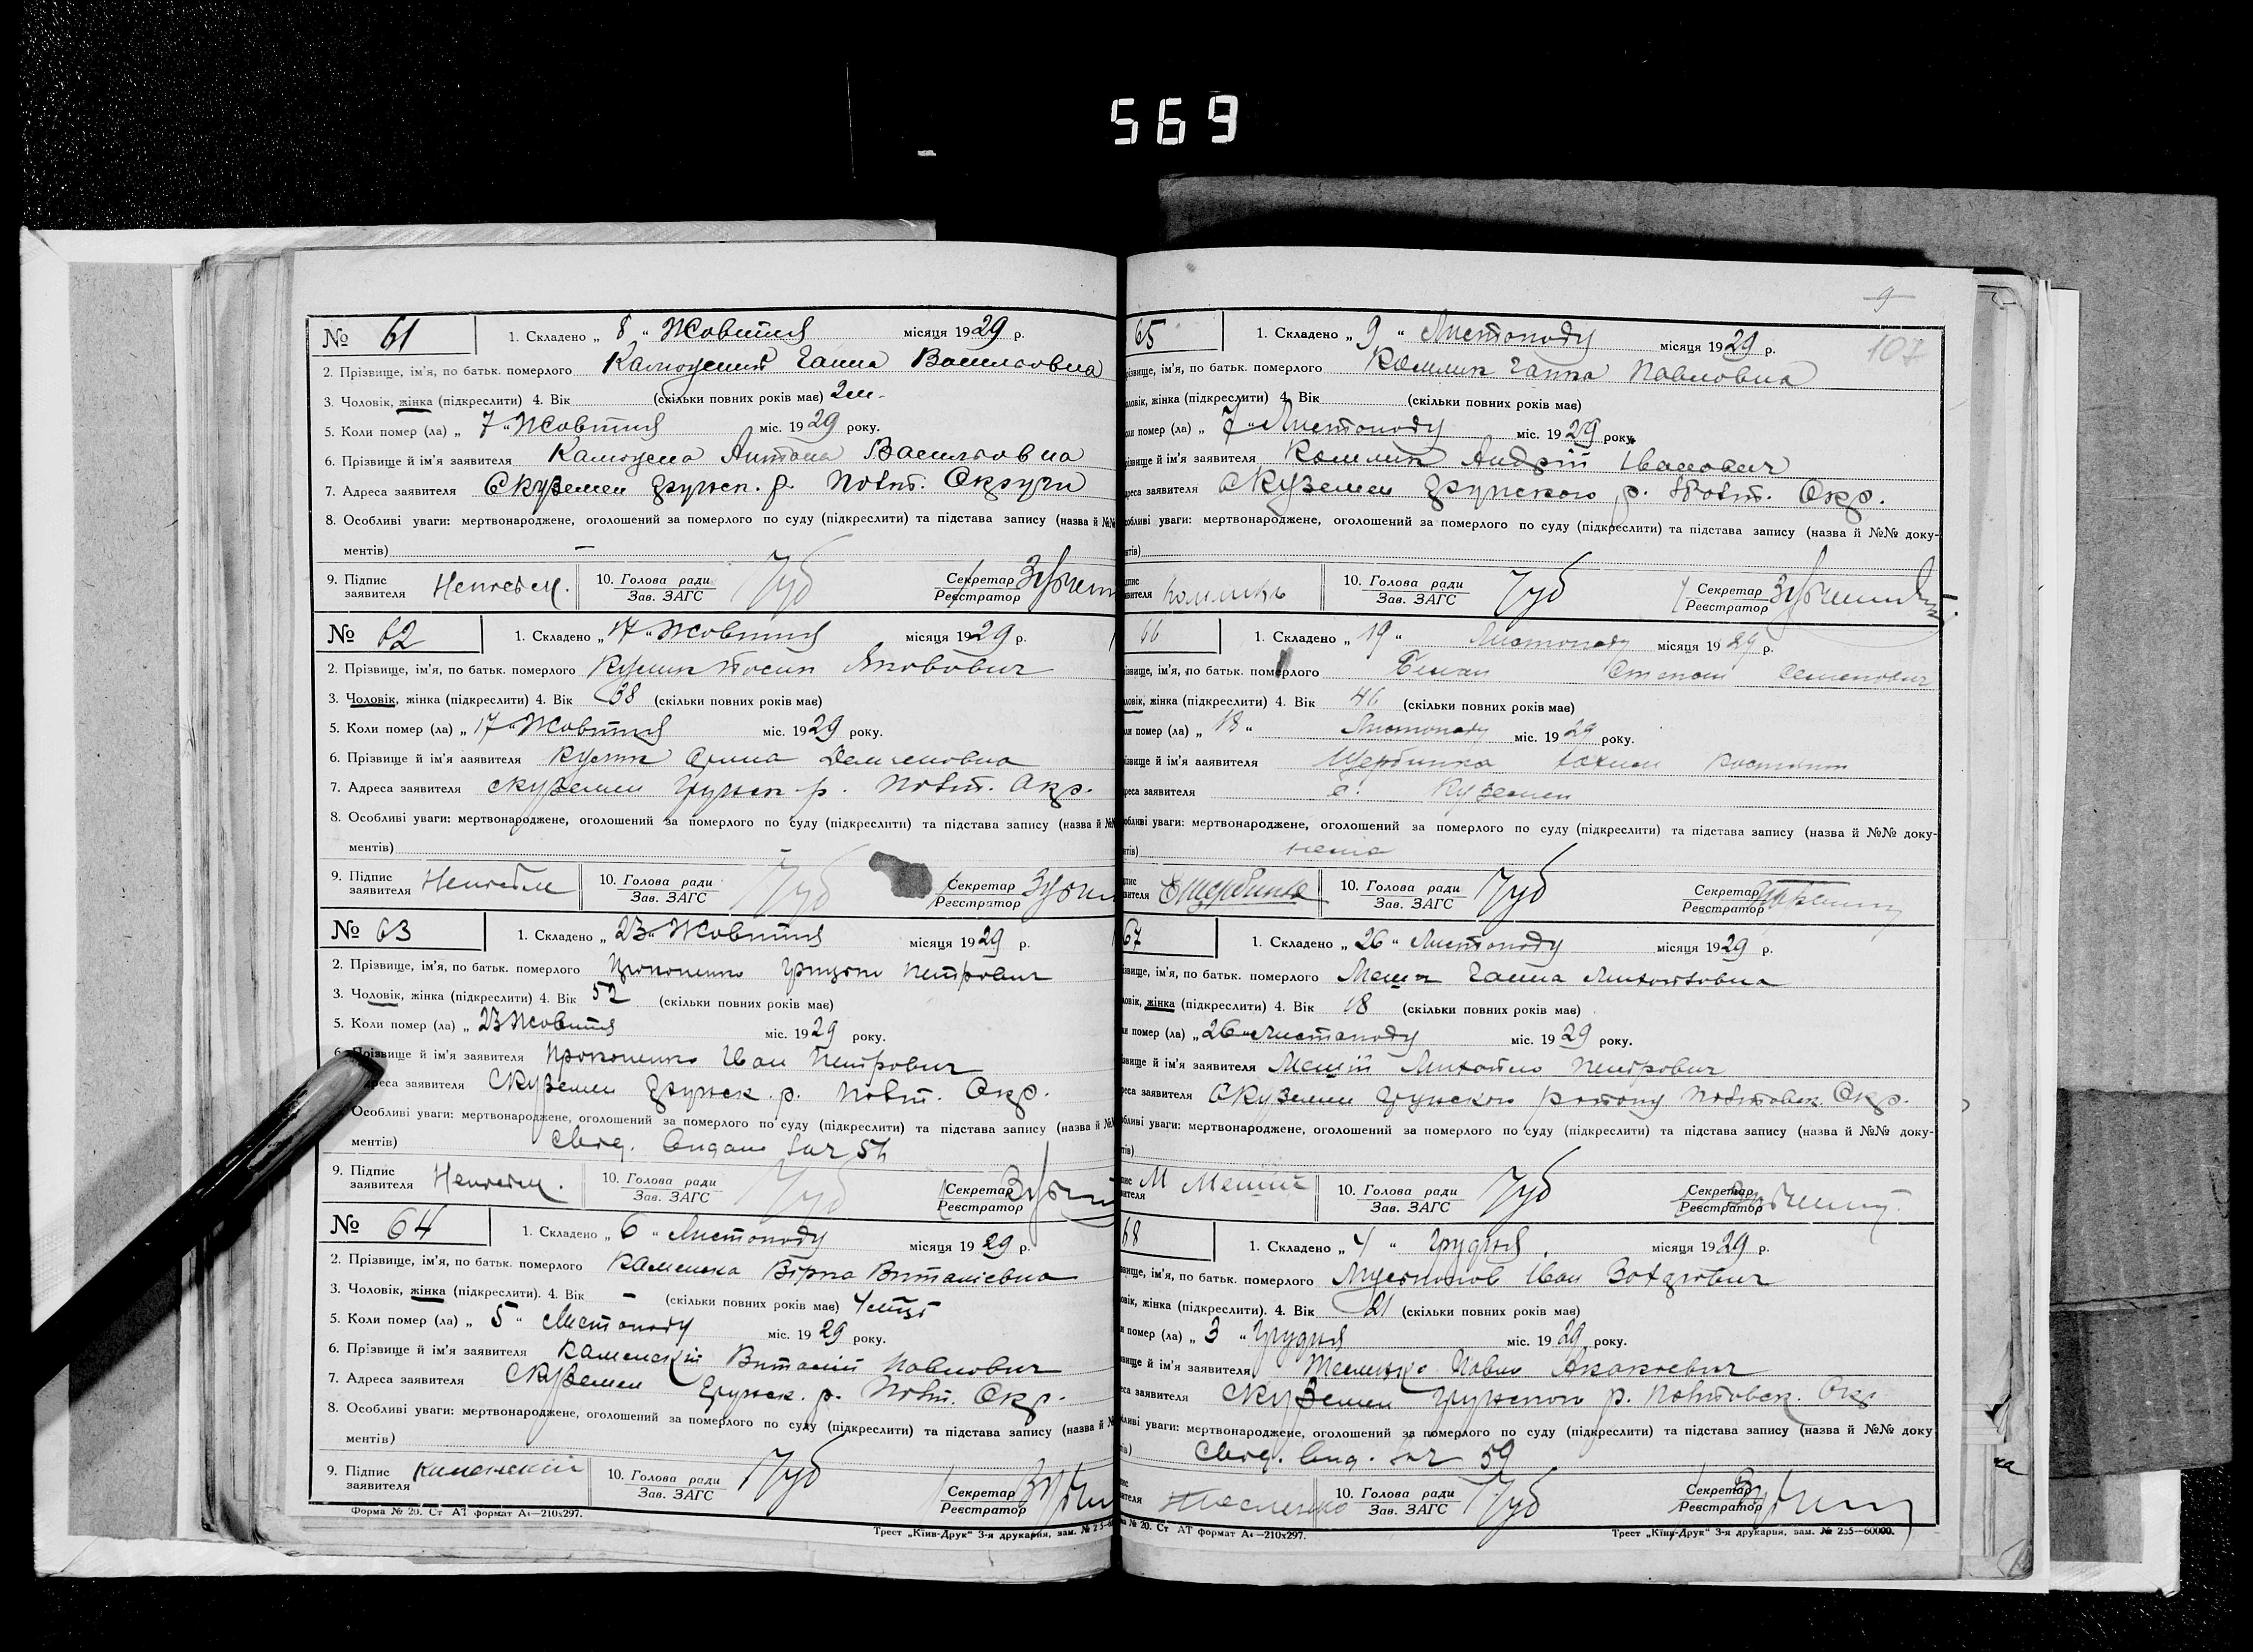 569
№ 61 1. Складено „ 8 “ Жовтня місяця 1929 р.
2. Прізвище, ім'я, по батьк. померлого Ганна Васильовна
3. Чоловік, жінка (підкреслити) 4. Вік (скільки повних років має) 2м.
5. Коли помер (ла) „ 7 “ Жовтня міс. 1929 року.
6. Прізвище й ім'я заявителя Васильовна
7. Адреса заявителя С Куземен Грунск. р. Полт. Округи
8. Особливі уваги: мертвонароджене, оголошений за померлого по суду (підкреслити) та підстава запису (назва й №№
ментів) –
9. Підпис заявителя Неписьм. 10. Голова ради Зав. ЗАГС Чуб Секретар Реєстратор
№ 62 1. Складено „ 17 “ Жовтня місяця 1929 р.
2. Прізвище, ім'я, по батьк. померлого Йосип Якович
3. Чоловік, жінка (підкреслити) 4. Вік 38 (скільки повних років має)
5. Коли помер (ла) „ 17 “ Жовтня міс. 1929 року.
6. Прізвище й ім'я заявителя Демяновна
7. Адреса заявителя С Куземен Грунск. р. Полт. Окр.
8. Особливі уваги: мертвонароджене, оголошений за померлого по суду (підкреслити) та підстава запису (назва й №№
ментів) –
9. Підпис заявителя Неписьм 10. Голова ради Зав. ЗАГС Чуб Секретар Реєстратор
№ 63 1. Складено „ 23 “ Жовтня місяця 1929 р.
2. Прізвище, ім'я, по батьк. померлого Прокопенко Грицько Петрович
3. Чоловік, жінка (підкреслити) 4. Вік 52 (скільки повних років має)
5. Коли помер (ла) „ 23 Жовтня міс. 1929 року.
6. Прізвище й ім'я заявителя Прокопенко Іван Петрович
Адреса заявителя С Куземен Грунск. р. Полт. Окр.
Особливі уваги: мертвонароджене, оголошений за померлого по суду (підкреслити) та підстава запису (назва й №№
ментів)
9. Підпис заявителя Неписьм. 10. Голова ради Зав. ЗАГС Чуб Секретар Реєстратор
№ 64 1. Складено „ 6 “ Листопаду місяця 1929 р.
2. Прізвище, ім'я, по батьк. померлого Каменська Вірка Виталієвна
3. Чоловік, жінка (підкреслити). 4. Вік – (скільки повних років має)
5. Коли помер (ла) „ 5 “ Листопаду міс. 1929 року.
6. Прізвище й ім'я заявителя Каменский Виталій Павлович
7. Адреса заявителя С Куземен Грунск. р. Полт. Окр.
8. Особливі уваги: мертвонароджене, оголошений за померлого по суду (підкреслити) та підстава запису (назва й №
ментів)
9. Підпис заявителя Каменский 10. Голова ради Зав. ЗАГС Чуб Секретар Реєстратор
Форма № 20. Ст АТ формат А4—210х297.
Трест „Київ-Друк“ 3-я друкарня, зам. №
9
107
65 1. Складено „ 9 “ Листопаду місяця 1929 р.
різвище, ім'я, по батьк. померлого Ганна Павловна
оловік, жінка (підкреслити) 4. Вік (скільки повних років має)
оли помер (ла) „ 7 “ Листопаду міс. 1929 року.
різвище й ім'я заявителя Андрій Іванович
дреса заявителя С Куземен Грунского р. Полт. Окр.
собливі уваги: мертвонароджене, оголошений за померлого по суду (підкреслити) та підстава запису (назва й №№ доку-
нтів)
дпис явителя 10. Голова ради Зав. ЗАГС Чуб Секретар Реєстратор
66 1. Складено „ 19 “ Листопаду місяця 1929 р.
ізвище, ім'я, по батьк. померлого Степан Семенович
ловік, жінка (підкреслити) 4. Вік 46 (скільки повних років має)
ли помер (ла) „ 18 “ Листопаду міс. 1929 року.
різвище й ім'я заявителя Щербинка
реса заявителя с. Куземен
собливі уваги: мертвонароджене, оголошений за померлого по суду (підкреслити) та підстава запису (назва й №№ доку-
нтів) нема
дпис явителя 10. Голова ради Зав. ЗАГС Чуб Секретар Реєстратор
67 1. Складено „ 26 “ Листопаду місяця 1929 р.
ізвище, ім'я, по батьк. померлого Ганна Михайловна
ловік, жінка (підкреслити) 4. Вік 18 (скільки повних років має)
ли помер (ла) „ 26 “ Листопаду міс. 1929 року.
ізвище й ім'я заявителя Михайло Петрович
реса заявителя С Куземен Грунского району Полтавск. Окр.
обливі уваги: мертвонароджене, оголошений за померлого по суду (підкреслити) та підстава запису (назва й №№ доку-
нтів)
пис вителя М 10. Голова ради Зав. ЗАГС Чуб Секретар Реєстратор
68 1. Складено „ 4 “ Грудня місяця 1929 р.
звище, ім'я, по батьк. померлого Іван
овік, жінка (підкреслити). 4. Вік 21 (скільки повних років має)
и помер (ла) „ 3 “ Грудня міс. 1929 року.
звище й ім'я заявителя Тесленко Павло
еса заявителя С Куземен Грунского р. Полтовск. Окр
ливі уваги: мертвонароджене, оголошений за померлого по суду (підкреслити) та підстава запису (назва й №№ доку
ів) 59
ис ителя Тесленко 10. Голова ради Зав. ЗАГС Чуб Секретар Реєстратор
№ 20. Ст АТ формат А4—210х297.
Трест „Київ-Друк“ 3-я друкарня, зам. № 255—60000.